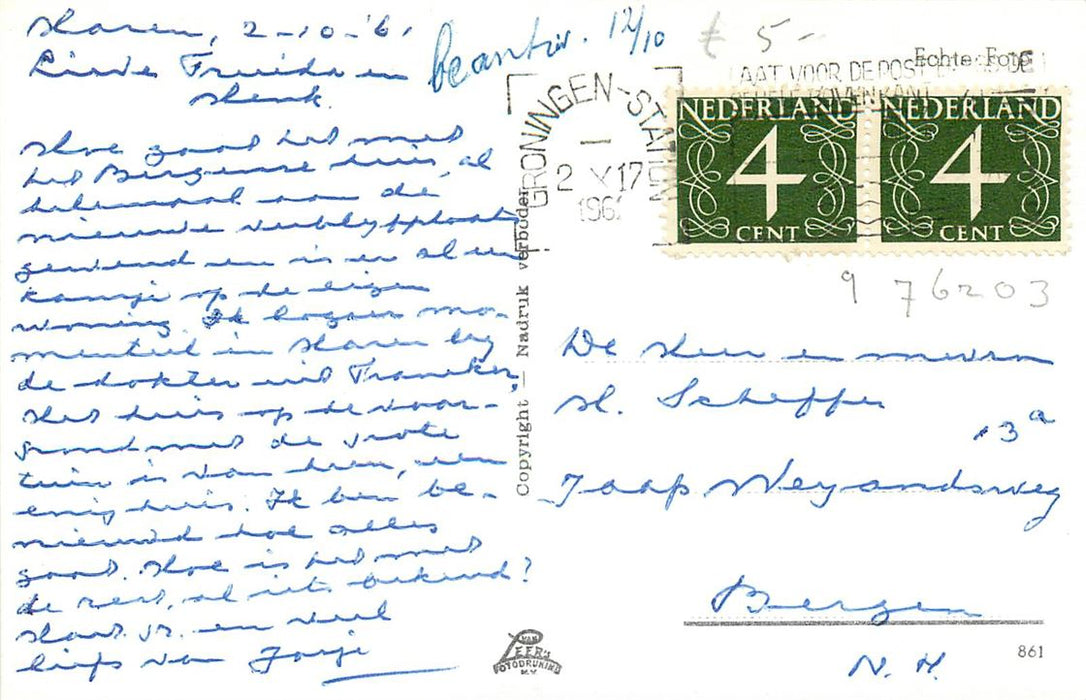 Haren, 2-10-'61
Lieve Truida en
Henk.
Hoe gaat het met
het Bergense huis, al
helemaal aan de
nieuwe verblijfplaats
gewend en is er al een
kansje op de eigen
woning. Ik logeer mo-
menteel in Haren bij
de dokter uit Franeker,
Het huis op de voor-
grond met de grote
tuin is van hen, een
enig huis. Ik ben be-
nieuwd hoe alles
gaat. Hoe is het met
de rest, al iets bekend?
en veel
liefs van
beantw. 12/10
£ 5-
Echte Foto
GRONINGEN-STATION
2 X 17
1961
LAAT VOOR DE POST
NEDERLAND
4
CENT
NEDERLAND
4
CENT
9 76203
Copyright — Nadruk verboden
De Heer en mevrouw
H. Scheffer
13a
Jaap Weyandsweg
Bergen
N. H.
VAN
LEER'S
FOTODRUKIND
N.V.
861